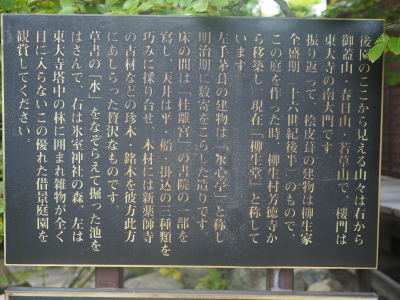 後園のここから見える山々は右から
御蓋山、春日山・若草山で、楼門は
東大寺の南大門です
振り返って、桧皮葺の建物は柳生家
全盛期(十六世紀後半)のもので、
この庭を作った時、柳生村芳徳寺か
ら移築し、現在「柳生堂」と称して
います
左手茅葺の建物は「氷心亭」と称し
明治期に数寄をこらした造りです
床の間は「桂離宮」の書院の一部を
写し、天井は平・船・掛込の三種類を
巧みに採り合せ、木材には新薬師寺
の古材などの珍木・銘木を彼方此方
にあしらった贅沢なものです。
草書の「水」をなぞらえて掘った池を
はさんで、右は氷室神社の森、左は
東大寺塔中の林に囲まれ雑物が全く
目に入らないこの優れた借景庭園を
観賞してください